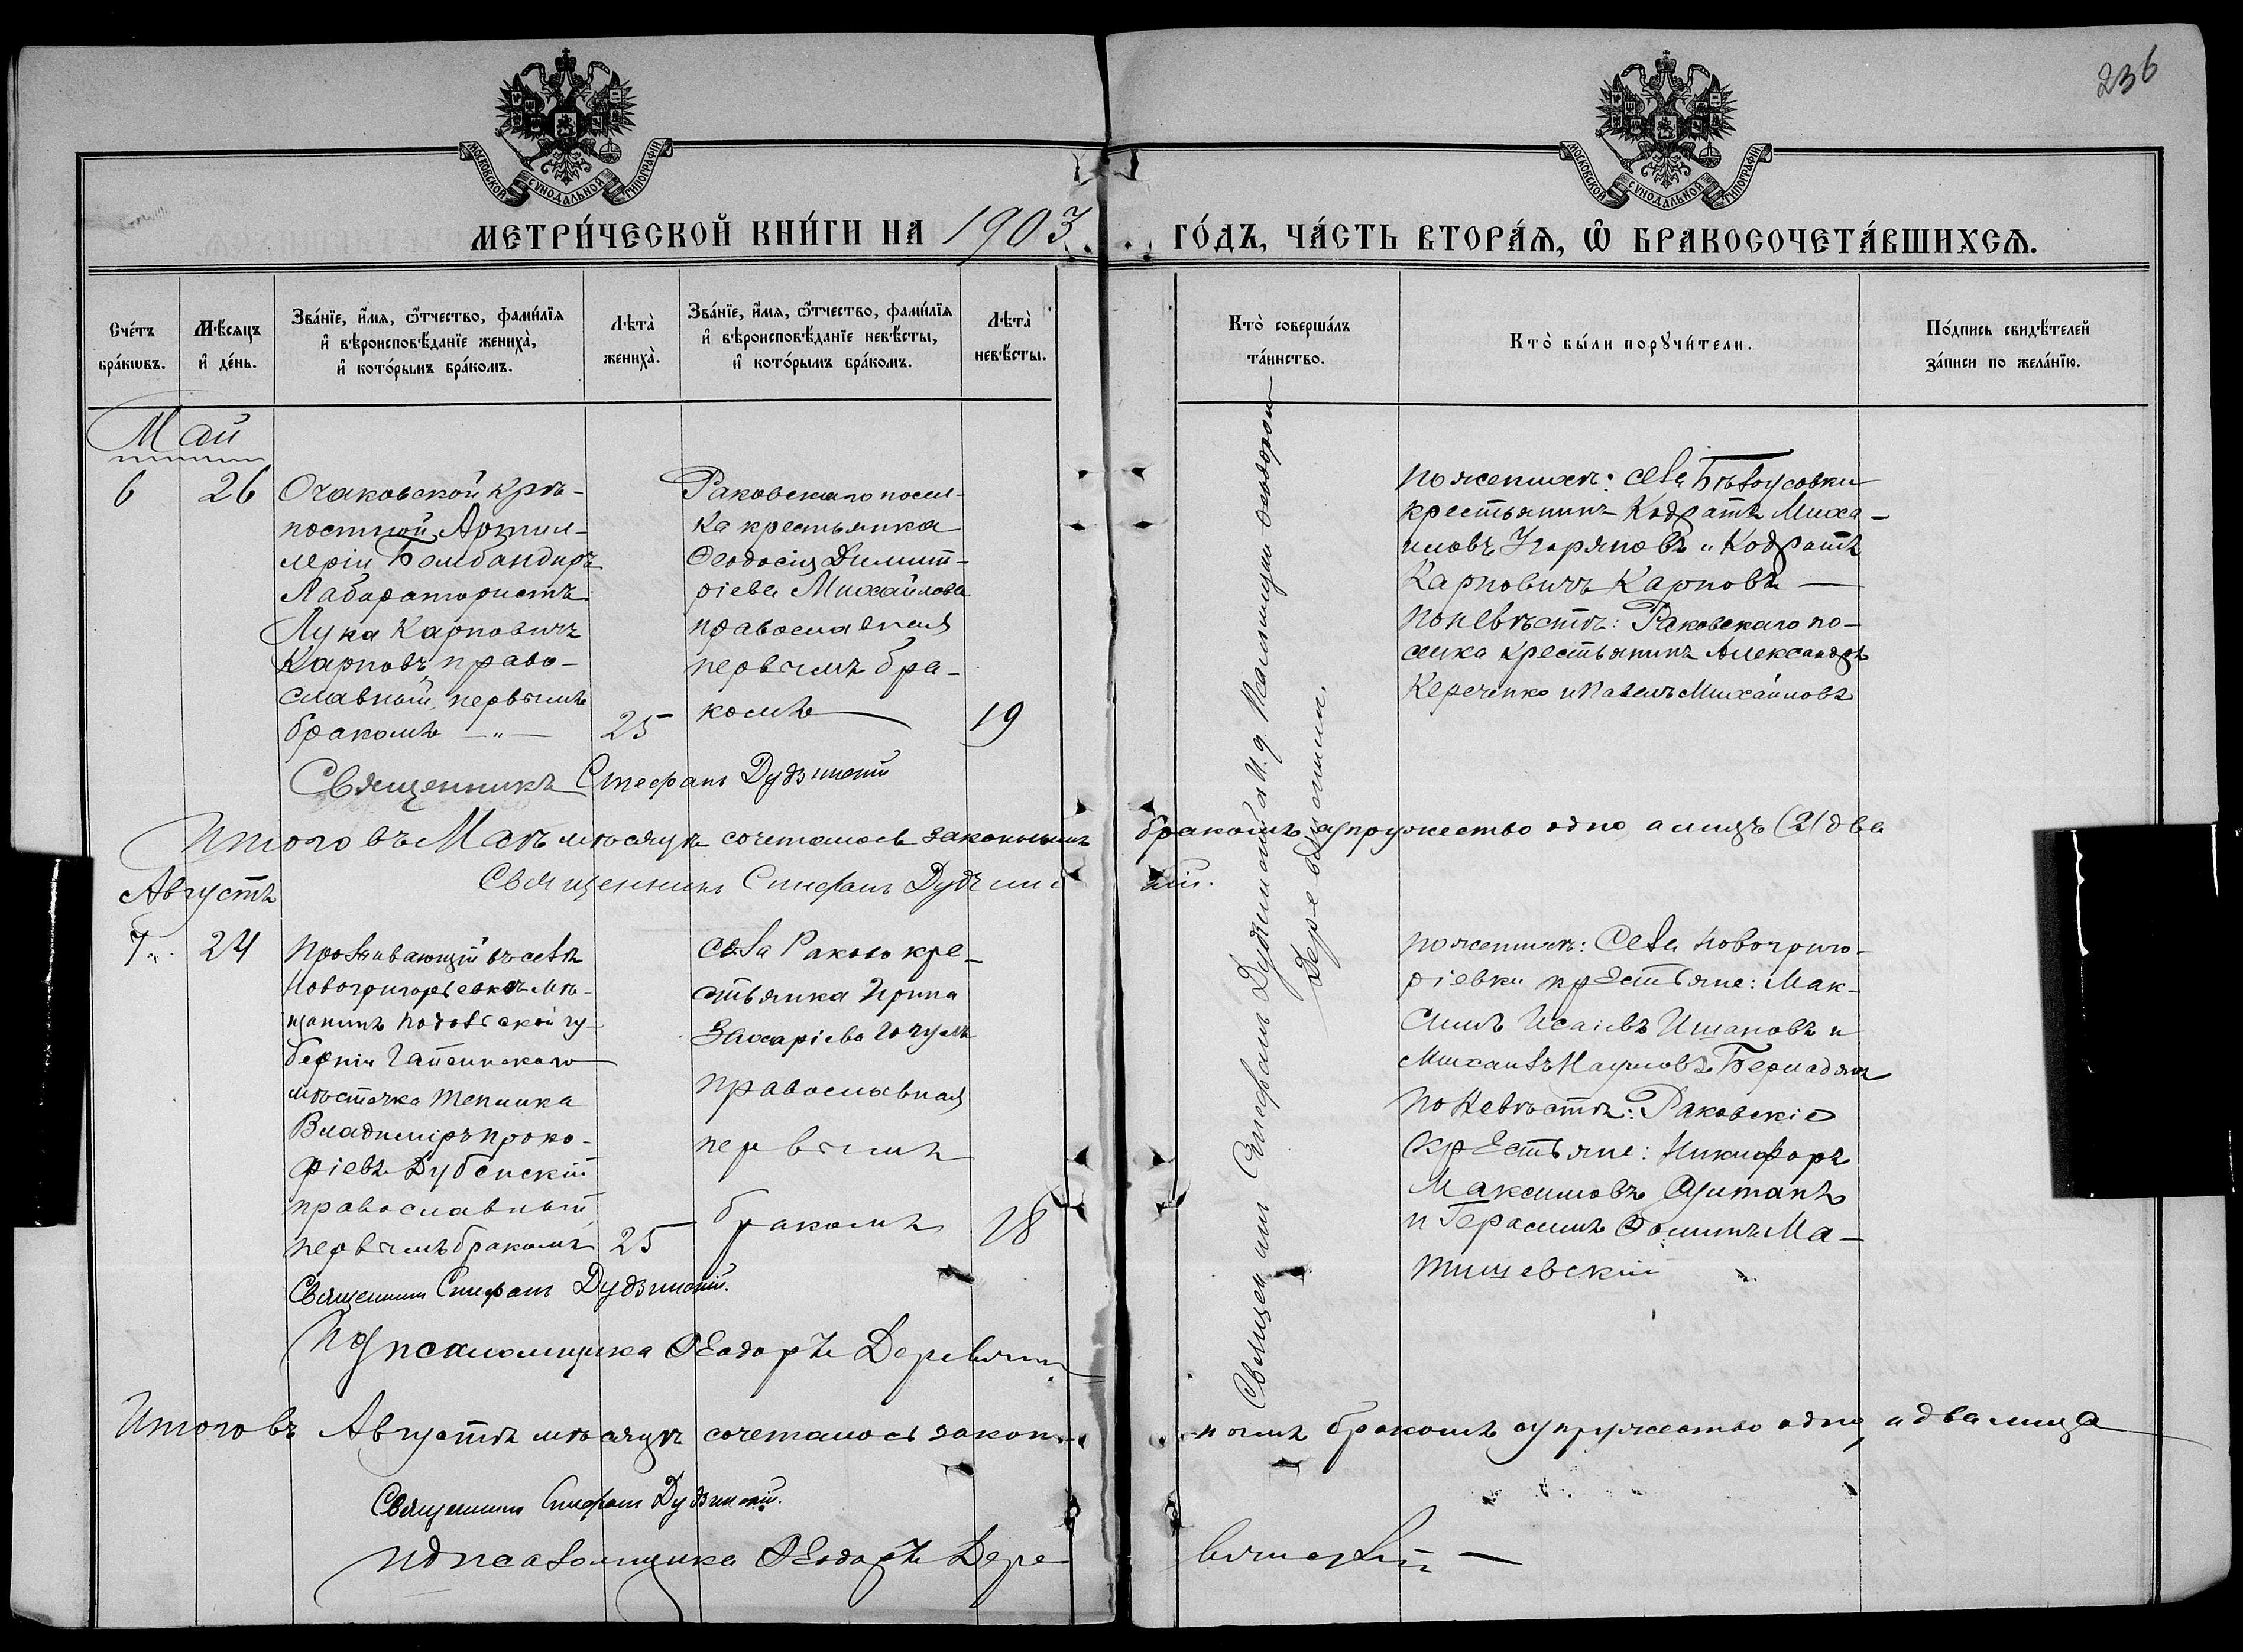 236
МОСКОВСКОЙ СѴНОДАЛЬНОЙ ТИПОГРАФІИ
МОСКОВСКОЙ СѴНОДАЛЬНОЙ ТИПОГРАФІИ
МЕТРИ́ЧЕСКОЙ КНИ́ГИ НА 1903
ГО́ДЪ, ЧА́СТЬ ВТОРА́Ѧ, Ѽ БРАКОСОЧЕТА́ВШИХСѦ.
Сче́тъ бра́кѡвъ.
Мѣ́сяцъ и҆ де́нь.
Зва́нїе, и҆́мѧ, ѻ҆́тчество, фами́лїѧ
и҆ вѣроисповѣ́данїе жениха̀,
и҆ кото́рымъ бра́комъ.
Лѣта̀ жениха̀.
Зва́нїе, и҆́мѧ, ѻ҆́тчество, фами́лїѧ
и҆ вѣроисповѣ́данїе невѣ́сты,
и҆ кото́рымъ бра́комъ.
Лѣта̀ невѣ́сты.
Кто̀ соверша́лъ та́инство.
Кто̀ бы́ли порꙋчи́тели.
По́дпись свидѣ́телей за́писи по жела́нїю.
Май
6
26
Очаковской крѣ-
постной Артил-
леріи Бомбандиръ
Лабаратористъ
Лука Карповичъ
Карповъ, право-
славный, первымъ
бракомъ — „ —
25
Раковскаго посел-
ка крестьянка
Ѳеодосія Димит-
ріева Михайлова
православная
первымъ бра-
комъ
19
по женихѣ: села Бѣлоусовки
крестьянинъ Кодратъ Миха-
иловъ и Кодратъ
Карповичъ Карповъ
По невѣстѣ: Раковскаго по-
селка крестьянинъ Александръ
и Павелъ Михайловъ
Священникъ Стефанъ Дудзинскій
Итого въ Маѣ мѣсяцѣ сочеталось законнымъ бракомъ супружество одно а лицъ (2) два
Священникъ Стефанъ Дудзинскій.
Священникъ Стефанъ Дудзинскій и И. д. Псаломщика Ѳеодоръ
Августъ
7
24
Проживающій въ селѣ
Новогригорьевкѣ мѣ-
щанинъ Подольской гу-
берніи Гайсинскаго
мѣстечка Теплика
Владиміръ Проко-
фіевъ Дубенскій
православный,
первымъ бракомъ
25
села Раково кре-
стьянка Ирина
Захаріева
православная
первымъ
бракомъ
18
по женихѣ: Села Новогриго-
ріевки крестьяне: Мак-
симъ Исаіевъ и
Михаилъ Наумовъ
По невѣстѣ: Раковскіе
крестьяне: Никифоръ
Максимовъ
и Герасимъ Фоминъ Ма-
тишевскій
Священникъ Стефанъ Дудзинскій.
Ид псаломщика Ѳеодоръ
Итого въ Августѣ мѣсяцѣ сочеталось закон-
нымъ бракомъ супружество одно, а два лица
Священникъ Стефанъ Дудзинскій.
Ид псаломщика Ѳеодоръ